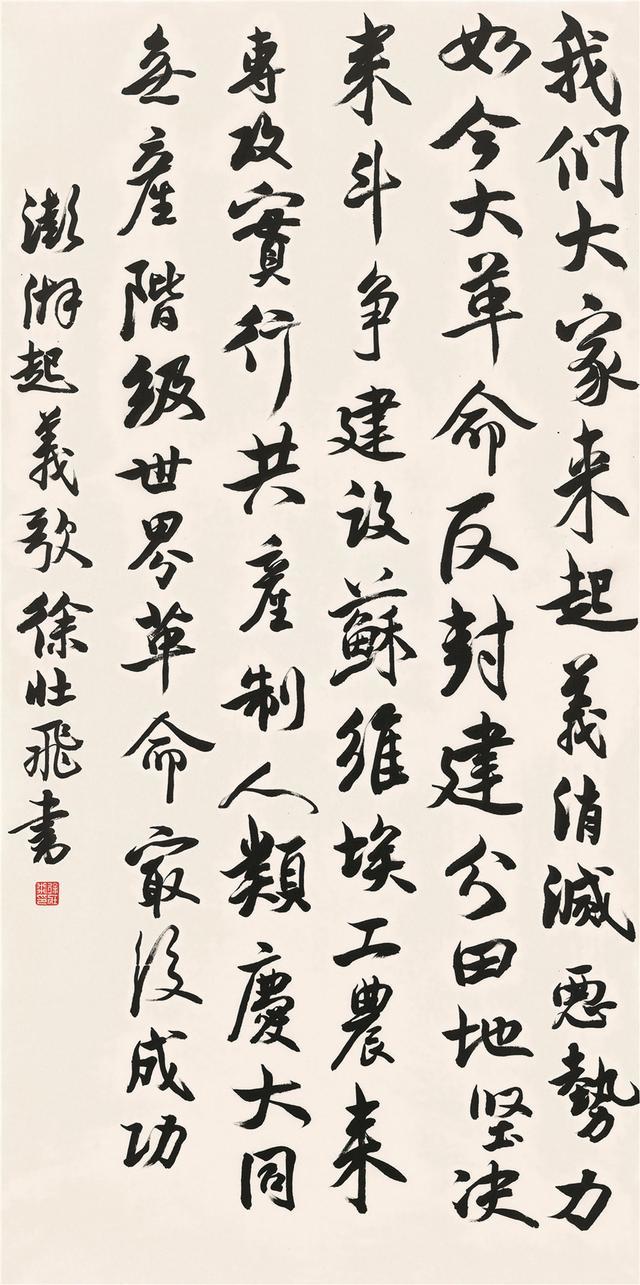 我们大家来起義消滅惡勢力
如今大革命反封建分田地坚决
来斗争建设蘇維埃工農来
專政實行共產制人類慶大同
無產階級世界革命最後成功
澎湃起義歌徐壮飛书